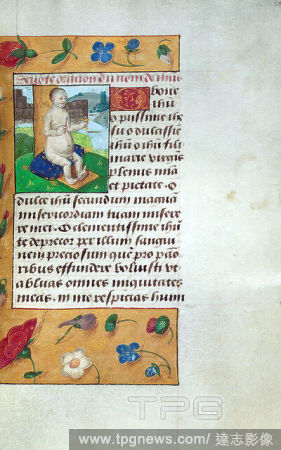 Deuote oration du nom de ihus
O bone
ihu
o piissime ihe
su o dulcissie
ihu o ihu fili
marie virgis
plenus mia
et pietate. O
dulcis ihu secundum magna
misericordiam tuam misere
re mei. O clementissime ihu
te deprecor per illum sangui
nem preciosum que pro pcco
ribus effundere voluisti vt
abluas omnes iniquitates
meas. in me respicias hum
TPG
www.tpgnews.com/達志影像